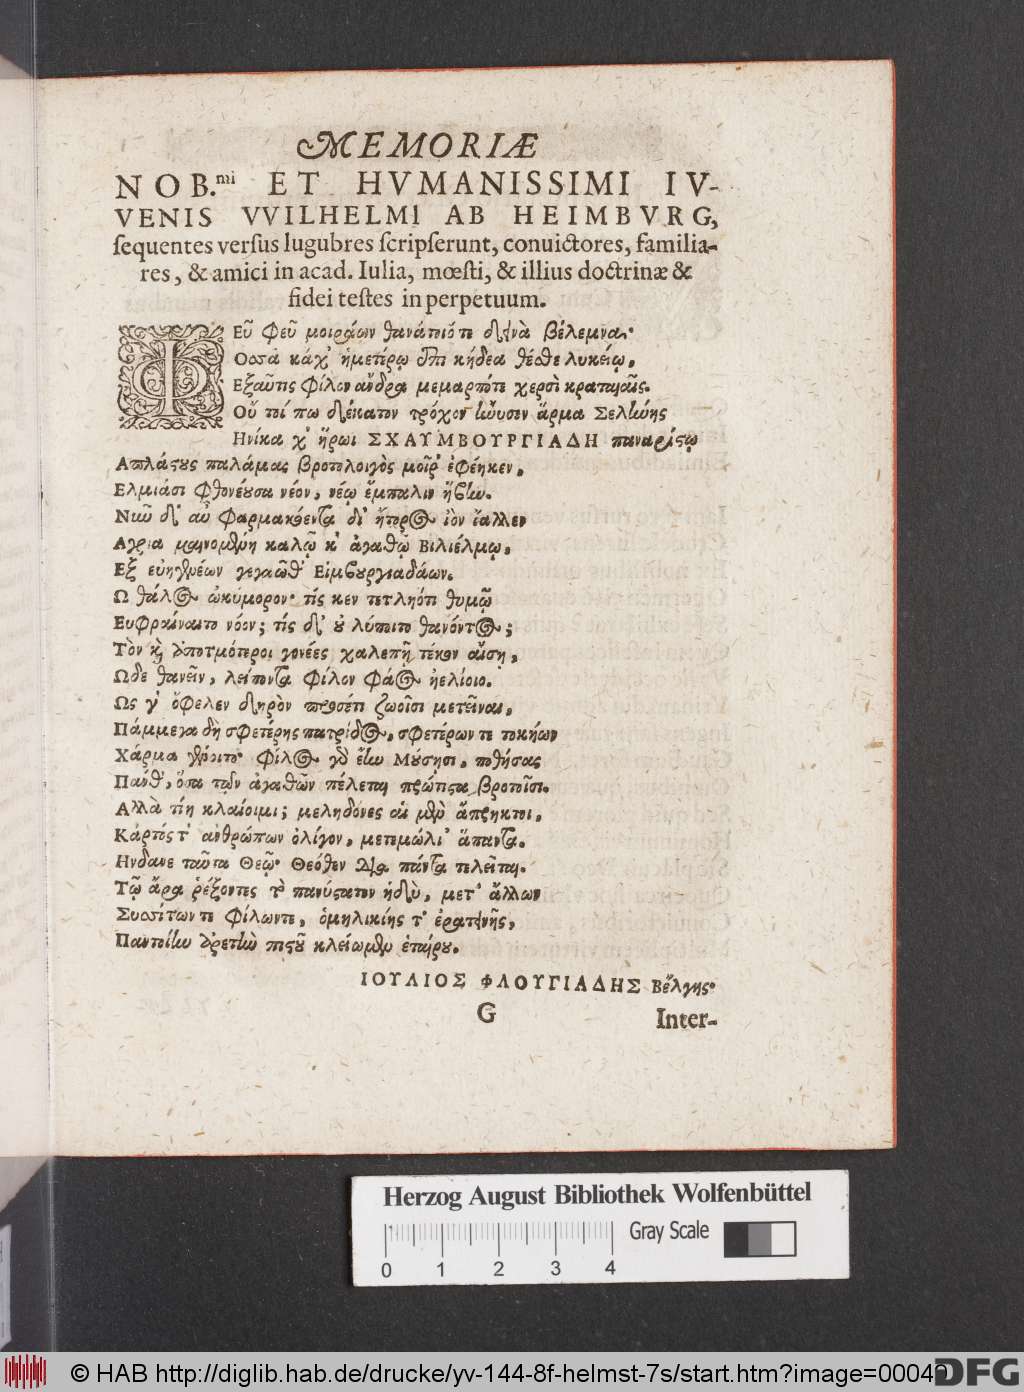 MEMORIÆ
NOB.mi ET HVMANISSIMI IV-
VENIS VVILHELMI AB HEIMBVRG,
sequentes versus lugubres scripserunt, convictores, familia-
res, & amici in acad. Iulia, mœsti, & illius doctrinæ &
fidei testes in perpetuum.
ΦΕῦ Φεῦ μοιράων θανάτοιό τε δεινὰ βέλεμνα·
Οσσά κάχ' ἡμετέρῳ ἐπὶ κήδεα θέσθε λυκείῳ,
Εξαῦτις Φίλον ἄνδρα μεμαρπότε χερσὶ κραταιαῖς.
Οὔ πώ δέκατον τρόχον ἤνυσεν ἅρμα Σελήνης
Ηνίκα χ' ἥρωι ΣΧΑΥΜΒΟΥΡΓΙΑΔΗ παναρίστῳ
Απλάτους παλάμας βροτολοιγὸς μοῖρ' ἐφέηκεν,
Ελμιάσι Φθονέουσα νέον, νέῳ ἔμπαλιν ἥβην.
Νῦν δ' αὖ Φαρμακόεντα δι' ἤτορος ἰὸν ἴαλλεν
Αγρια μαινομένη καλῷ κ' ἀγαθῷ Βιλιέλμῳ,
Εξ εὐηγενέων γεγαῶθ' Εἱμβουργιαδάων.
Ω θάλος ὠκύμορον· τίς κεν τετληότι θυμῷ
Ευφραίνοιτο νόον; τίς δ' οὐ λύποιτο θανόντος;
Τὸν καὶ ἀποτμότεροι γονέες χαλεπῇ τέκον αἴσῃ,
Ωδε θανεῖν, λείποντα Φίλον Φάος ἠελίοιο.
Ως γ' ὄφελεν δηρὸν προσέτι ζωοῖσι μετεῖναι,
Πάμμεγα δὴ σφετέρης πατρίδος, σφετέρων τε τοκήων
Χάρμα γένοιτο· Φίλος γὰρ ἔην Μούσῃσι, ποθήσας
Πάνθ', ὅσα τῶν ἀγαθῶν πέλεται πρώτιστα βροτοῖσι.
Αλλὰ τίη κλαίοιμι; μεληδόνες αἱ μὲν ἄπρηκτοι,
Κάρτός τ' ἀνθρώπων ὀλίγον, μεταμώλι' ἅπαντα.
Ηνδανε ταῦτα Θεῷ· Θεόθεν διὰ πάντα τελεῖται.
Τῷ ἄρα ῥέξοντες τὸ πανύστατον ἡδὺ, μετ' ἄλλων
Συσσίτων τε Φίλωντε, ὁμηλικίης τ' ἐρατεινῆς,
Παντοίην ἀρετὴν πιστοῦ κλείωμεν ἑταίρου.
ΙΟΥΛΙΟΣ ΦΛΟΥΓΙΑΔΗΣ Βέλγης·
G Inter-
Herzog August Bibliothek Wolfenbüttel
Gray Scale
0 1 2 3 4
© HAB http://diglib.hab.de/drucke/yv-144-8f-helmst-7s/start.htm?image=00049
DFG